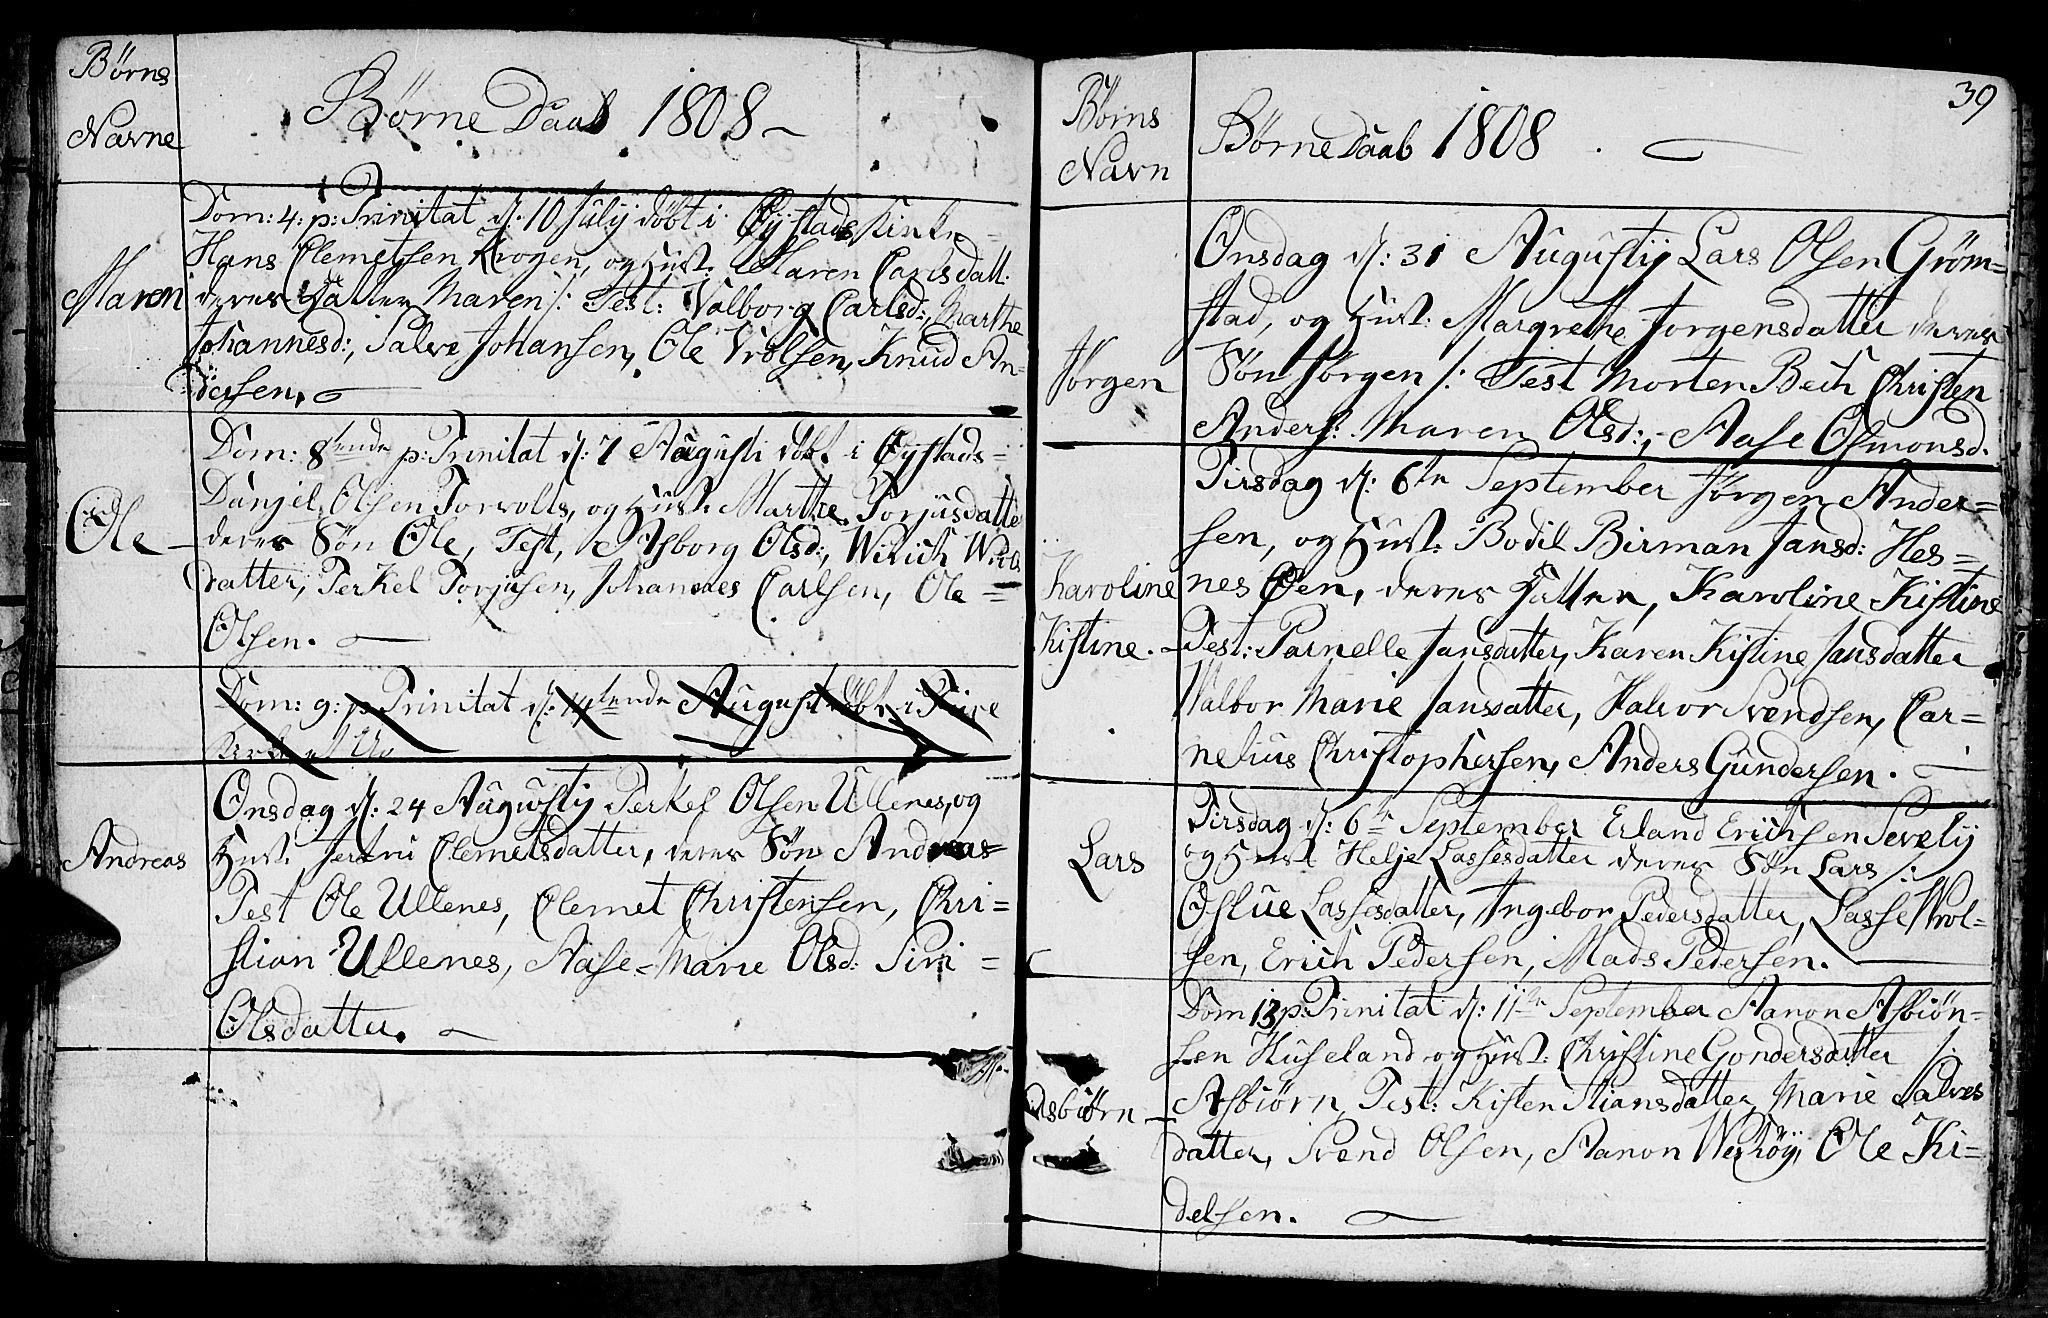 Børns
Navne
Børne Daab 1808
Dom: 4: p: Trinitat d: 10 July döbt i Øystads Kirke
Hans Clemetsen Krogen, og Hust: Maren Carlsdatt:
Maren
deres Datter Maren /: Test: Valborg Carlsd:, Marthe
Johannesd:, Salve Johansen, Ole Vrolsen, Knud An=
dersen.
Dom: 8tende p: Trinitat d: 7 Augusti döbt i Øystads=
Danjel Olsen Torvolts, og Hust: Marthe Torjusdatte
Ole
deres Søn Ole, Test, Asborg Olsd:,
datter, Terkel Torjusen, Johannes Carlsen, Ole =
Olsen.
Dom: 9: p: Trinitat d: 14tende August döbt i
Onsdag d: 24 Augustij Terkel Olsen Ullenes, og
Andreas
Hust. Clemetsdatter, deres Søn Andreas
Test Ole Ullenes, Clemet Christensen, Chri=
stian Ullenes, Aase=Marie Olsd: Siri =
Olsdatter.
39
Børns
Navn
Børne Daab 1808
Onsdag d: 31 Augustij Lars Olsen Grøm=
stad, og Hust: Margrethe Jorgensdatter deres
Jørgen
Søn Jørgen /: Test Morten Bech Christen
Anders: Maren Olsd:, Aase Osmonsd.
Tirsdag d: 6te September Jørgen Ander=
sen, og Hust: Bodil Birman Jansd: Hes=
Karoline
nes Øen, deres Datter, Karoline Kistine
Kistine.
Test: Parnelle Jansdatter, Karen Kistine Jansdatter
Valbor Marie Jansdatter, Halvor Svendsen, Cor=
nelius Christophersen, Anders Gundersen.
Tirsdag d: 6te September Erland Erichsen Sevelij
Lars
og Hust Helje Lassesdatter deres Søn Lars /:
Oslue Lassesdatter, Ingebor Pedersdatter, Lasse Vrol=
sen, Erich Pedersen, Mads Pedersen.
Dom 13 p: Trinitat d: 11te September Aanon Asbiøn=
sen Huseland og Hust: Christine Gondersdatter /:
Asbiørn
Asbiørn Test: Kisten Stiansdatter Marie Salves
datter, Svend Olsen, Aanon, Ole Ki=
delsen.